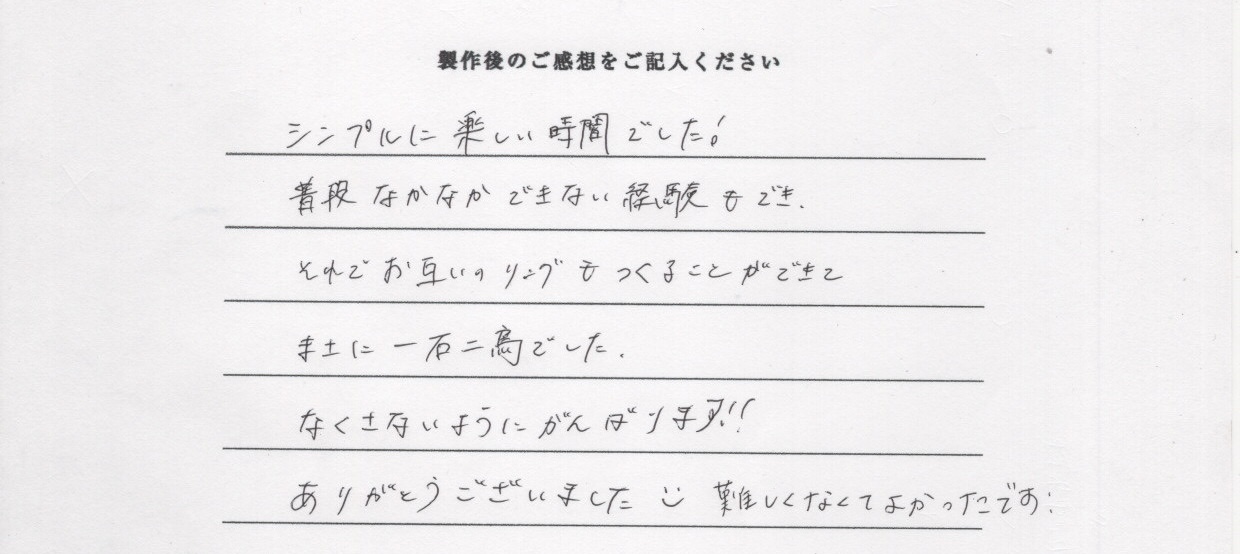 製作後のご感想をご記入ください
シンプルに楽しい時間でした!
普段なかなかできない経験もでき.
それでお互いのリングもつくることができて
まさに一石二鳥でした.
なくさないようにがんばります!!
ありがとうございました 難しくなくてよかったです: